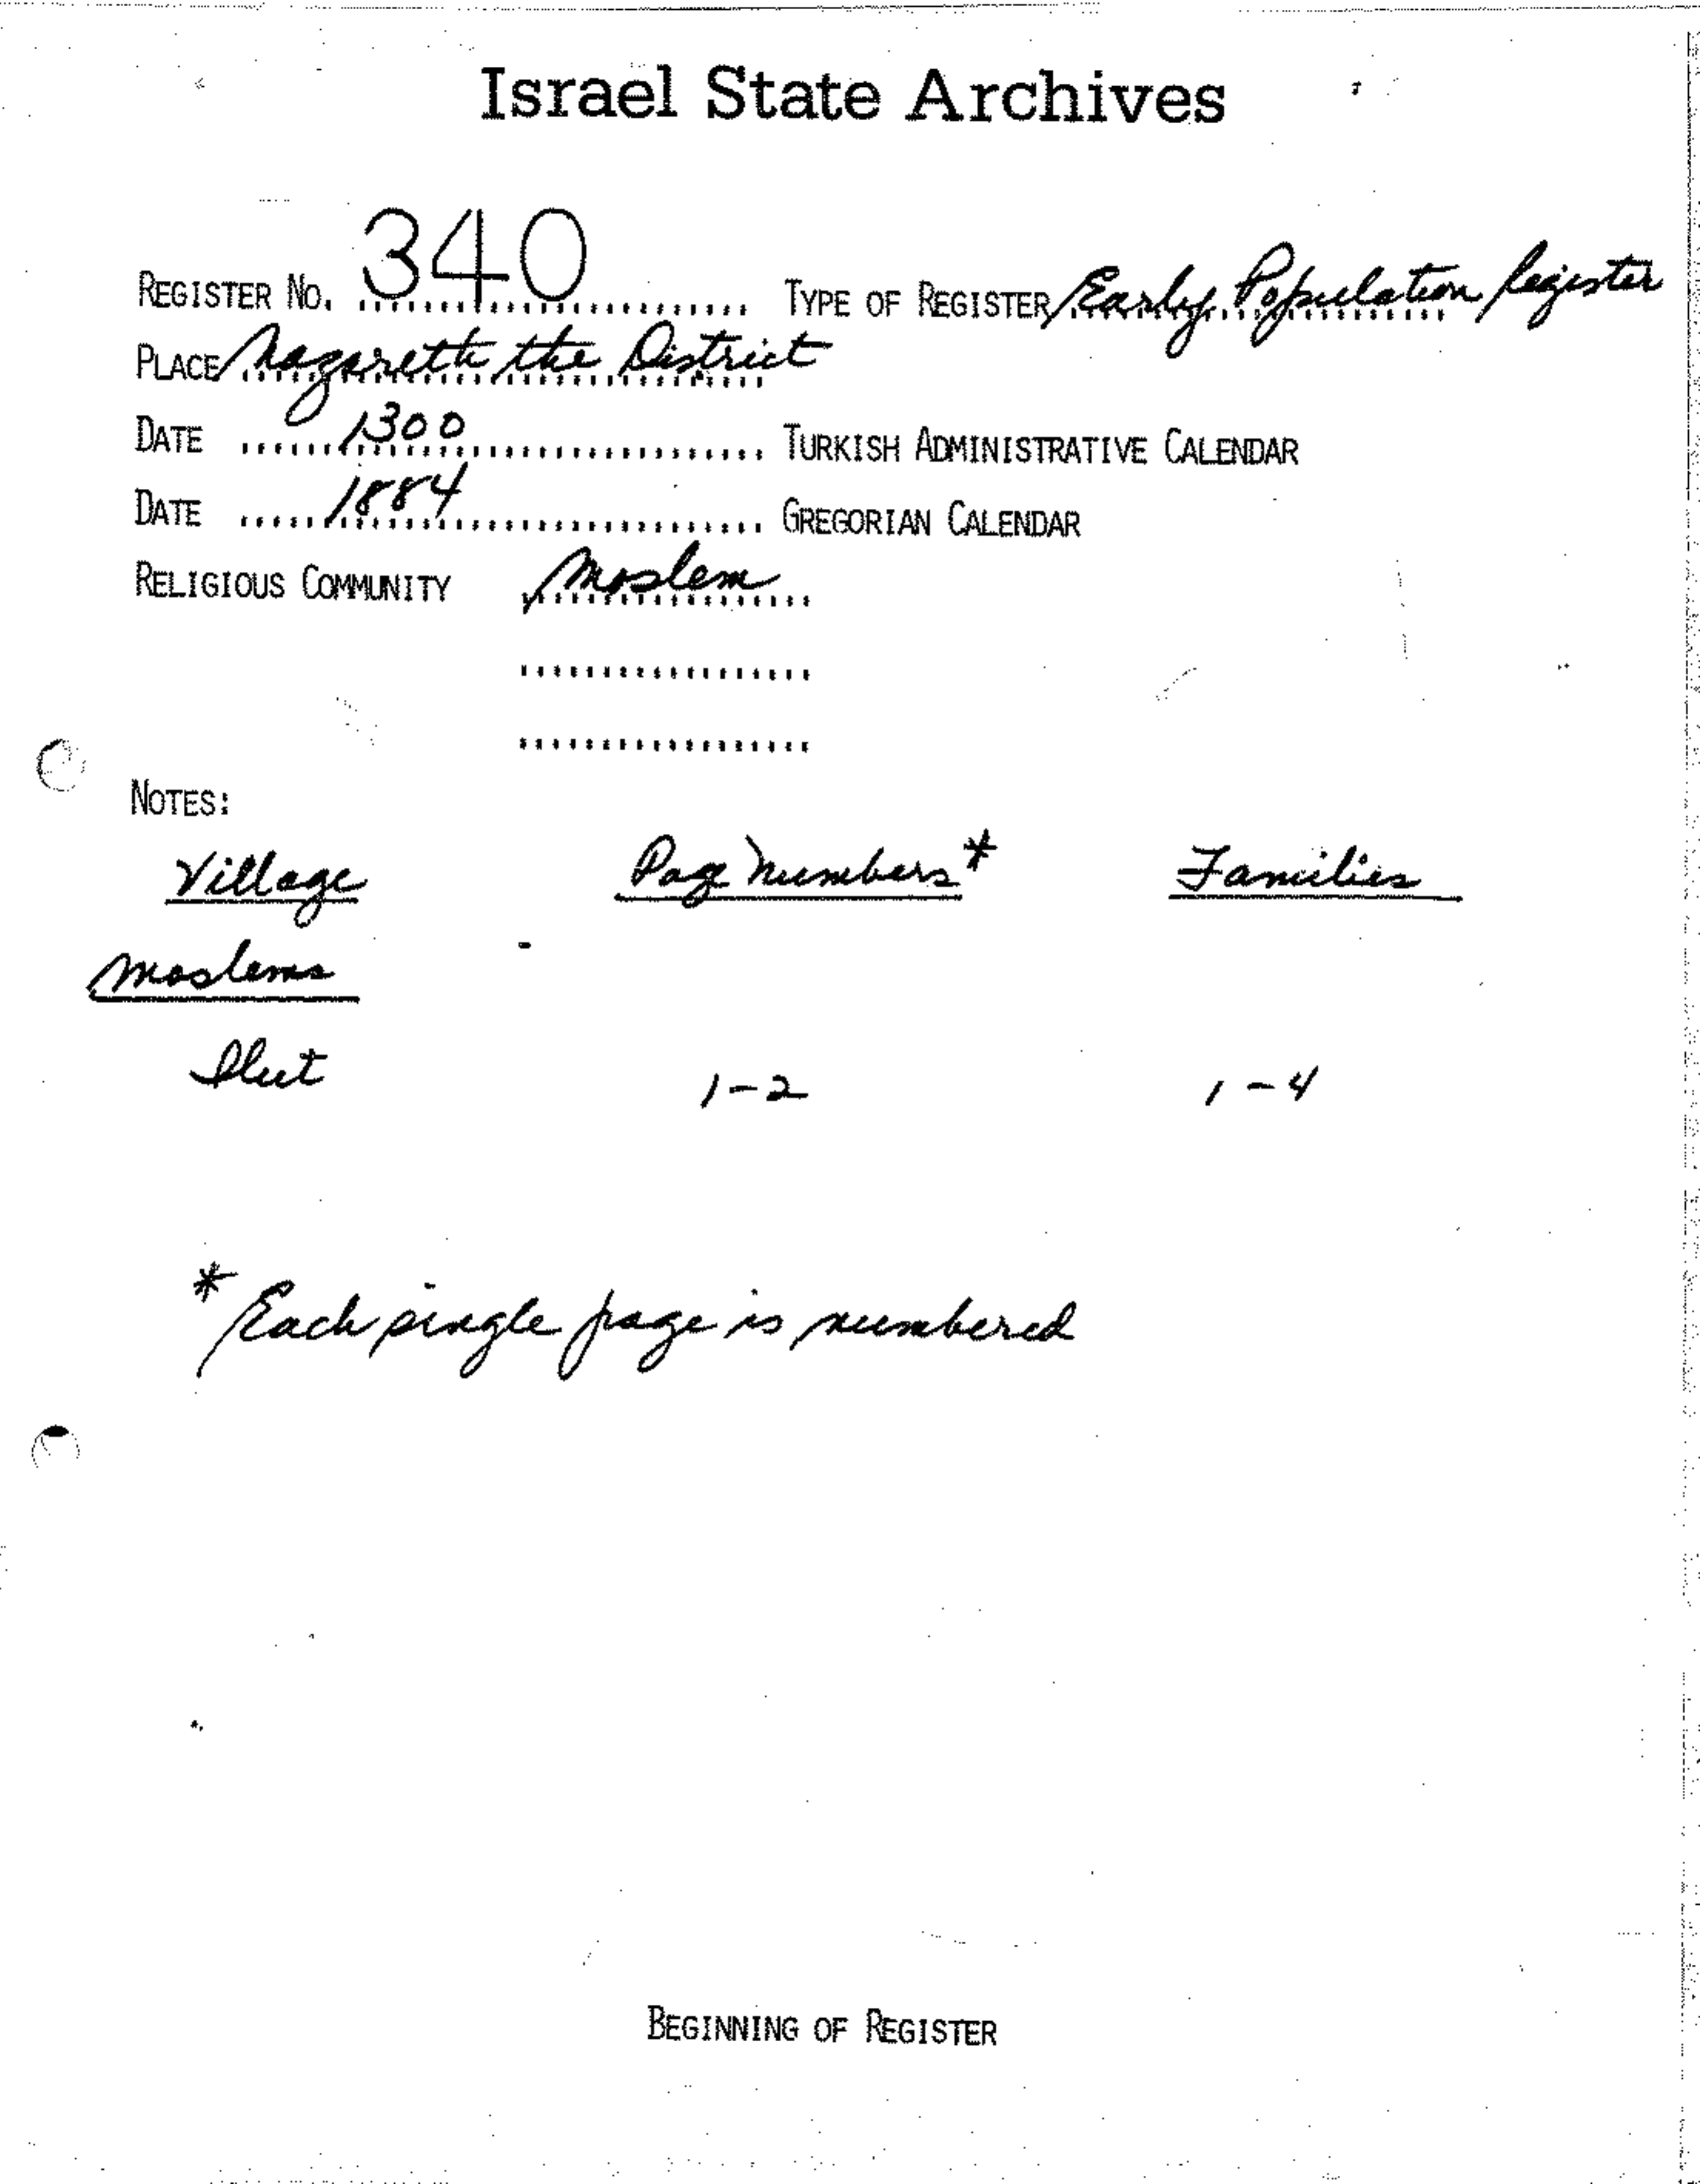 Israel State Archives
REGISTER NO. 340 TYPE OF REGISTER Early Population Register
PLACE Nazareth the District
DATE 1300 TURKISH ADMINISTRATIVE CALENDAR
DATE 1884 GREGORIAN CALENDAR
RELIGIOUS COMMUNITY Moslem
NOTES:
Village Page Numbers* Families
Moslems
Ilut 1-2 1-4
* Each single page is numbered
BEGINNING OF REGISTER